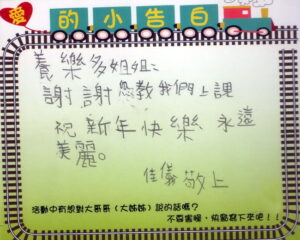 愛的小告白
養樂多姐姐:
謝謝您教我們上課
祝新年快樂 永遠
美麗。
佳儀 敬上
活動中有想對大哥哥(大姊姊)說的話嗎?
不要害慢,快點寫下來吧!!